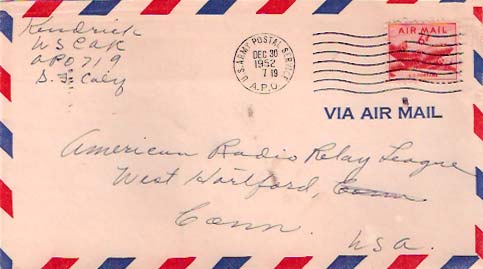 Kendrick
USCAR
APO 719
S. F. Calif
U.S. ARMY POSTAL SERVICE
DEC 30
1952
7 19
A.P.O.
AIR MAIL
6¢
VIA AIR MAIL
American Radio Relay League
West Hartford, Conn
Conn.
USA.